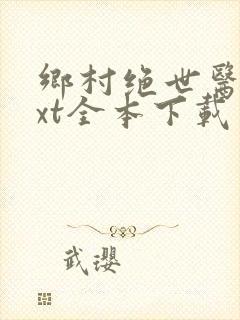 鄉村绝世醫
xt全本下載
武瓔